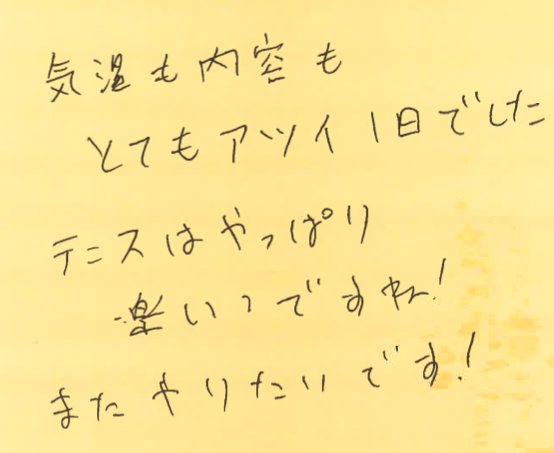 気温も内容も
とてもアツイ1日でした
テニスはやっぱり
楽いっですね!
またやりたいです!